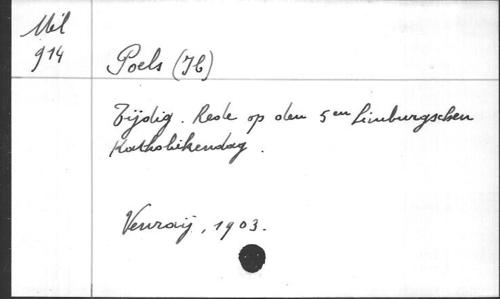 Mél
914
Poels (H)
Tijdig. Rede op den 5en Limburgschen
Katholikendag.
Venraij, 1903.